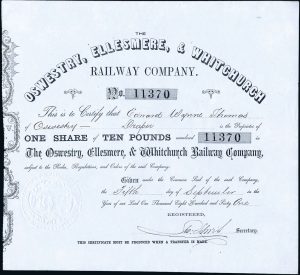 THE
OSWESTRY, ELLESMERE, & WHITCHURCH
RAILWAY COMPANY.
No. 11370
This is to Certify that Edward Wynne Thomas
of Oswestry Draper is the Proprietor of
ONE SHARE of TEN POUNDS numbered 11370 in
The Oswestry, Ellesmere, & Whitchurch Railway Company,
subject to the Rules, Regulations, and Orders of the said Company.
Given under the Common Seal of the said Company, the
Fifth day of September in the
Year of our Lord One Thousand Eight Hundred and Sixty One.
REGISTERED,
Secretary.
THIS CERTIFICATE MUST BE PRODUCED WHEN A TRANSFER IS MADE.